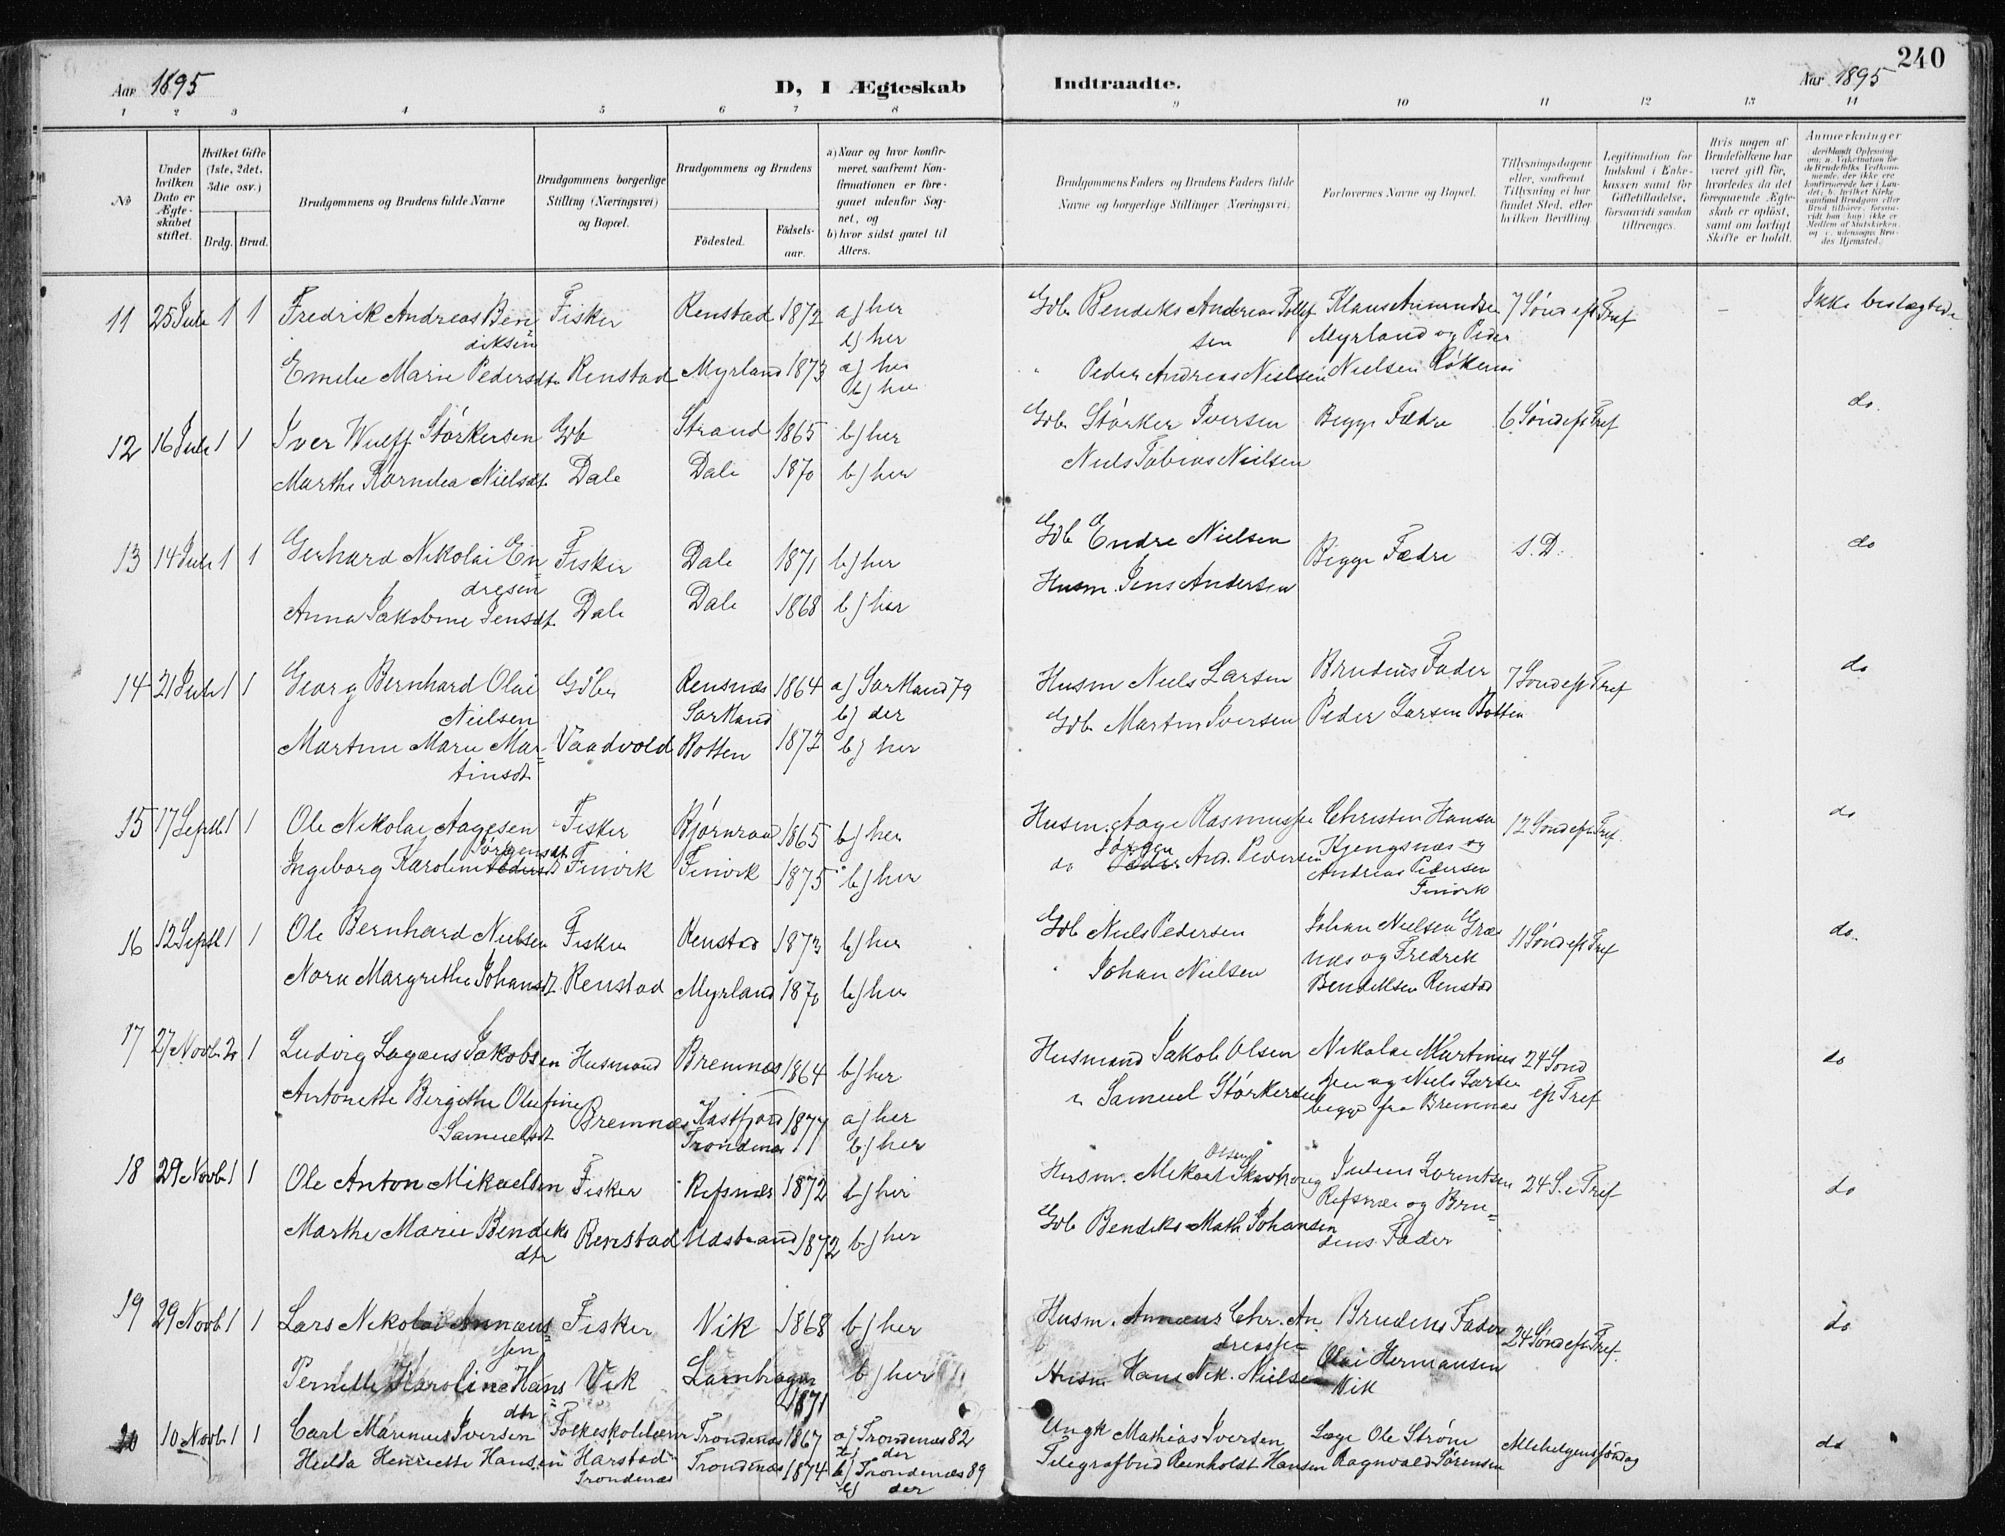 240
Aar 1895 D, I Ægteskab Indtraadte. Aar 1895
1 2 3 4 5 6 7 8 9 10 11 12 13 14
No
Under hvilken Dato er Ægteskabet stiftet.
Hvilket Gifte (1ste, 2det, 3die osv.)
Brdg. Brud.
Brudgommens og Brudens fulde Navne
Brudgommens borgerlige Stilling (Næringsvei) og Bopæl.
Brudgommens og Brudens
Fødested. Fødselsaar.
a) Naar og hvor konfirmeret, saafremt Konfirmationen er foregaaet udenfor Sognet, og
b) hvor sidst gaaet til Alters.
Brudgommens Faders og Brudens Faders fulde Navne og borgerlige Stillinger (Næringsvei)
Forlovernes Navne og Bopæl.
Tillysningsdagene eller, saafremt Tillysning ei har fundet Sted, efter hvilken Bevilling.
Legitimation for Indskud i Enkekassen samt for Giftetilladelse, forsaavidt saadan tiltrænges.
Hvis nogen af Brudefolkene har været gift før, hvorledes da det foregaaende Ægteskab er opløst, samt om lovligt Skifte er holdt.
Anmerkninger
11 25 Juli 1 1 Fredrik Andreas Ben= Fisker Renstad 1872 a) her Gdb. Bendiks Andreas Tollef Klaus Amundsen 7 Sønd eft Tref – Ikke beslægtede
diksen b) her sen Myrland og Peder
Emelie Marie Pedersdt. Renstad Myrland 1873 a) her " Peder Andreas Nielsen Nielsen
b) her
12 16 Juli 1 1 Iver Wulff Størkersen Gdb Strand 1865 b) her Gdb. Størker Iversen Begge Fædre 6 Sønd eft Tref do.
Marthe Kornelia Nielsdt. Dale Dale 1870 b) her Niels Tobias Nielsen
13 14 Juli 1 1 Gerhard Nikolai En= Fisker Dale 1871 b) her Gdb Endre Nielsen Begge Fædre S.D. do
dresen
Anna Jakobine Jensdt. Dale Dale 1868 b) her Husm. Jens Andersen
14 21 Juli 1 1 Georg Bernhard Olai Gdbr Rensnæs 1864 a) Sortland 79 Husm Niels Larsen Brudens Fader 7 Sønd eft Tref do
Nielsen Sortland b) der Gdb Martin Iversen Peder Larsen Botten
Martine Marie Mar= Vaadvold Botten 1872 b) her
tinsdt.
15 17 Septb 1 1 Ole Nikolai Aagesen Fisker Bjørnraa 1865 b) her Husm. Aage Rasmussen Christen Hansen 12 Sønd eft Tref. do
Jørgensdt. Jørgen Kjengsnæs og
Ingeborg Karoline Pedersdt Finvik Finvik 1875 b) her do Peder And. Pedersen Andreas Pedersen
Finvik
16 12 Septb 1 1 Ole Bernhard Nielsen Fisker Renstad 1873 b) her Gdb Niels Pedersen Johan Nielsen Græs 11 Sønd eft Tref do.
Nora Margrethe Johansdt. Renstad Myrland 1870 b) her " Johan Nielsen næs og Fredrik
Bendiksen Renstad
17 27 Novb 2 1 Ludvig Jakobsen Husmand Bremnæs 1864 b) her Husmand Jakob Olsen Nikolai Martinus 24 Sønd do
Antonette Birgithe Olufine Bremnæs Kastfjord 1877 a) her " Samuel Størkersen sen og Niels Larsen eft Tref
Samuelsdt Trondenæs b) her begge fra Bremnæs
18 29 Novb 1 1 Ole Anton Mikaelsen Fisker Refsnæs 1872 b) her Husm. Mikael Olsen Skavhaug Julius Lorentsen 24 S. e Tref do
Refsnæs og Bru=
Marthe Marie Bendiks Renstad Udstrand 1872 b) her Gdb Bendiks Math Johansen dens Fader
dtr
19 29 Novb 1 1 Lars Nikolai Annæus= Fisker Vik 1868 b) her Husm. Annæus Chr. An. Brudens Fader 24 Sønd eft Tref. do
sen dreassen
Pernille Karoline Hans= Vik 1871 b) her Husm Hans Nik. Nielsen Olai Hermansen
dtr Vik
20 10 Novb 1 1 Carl Marinius Iversen Folkeskolelærer Trondenæs 1867 a) Trondenæs 82 Ungk Mathias Iversen Lage Ole Strøm Allehelgenssøndag do
b) der
Hilda Henriette Hansen Harstad Trondenæs 1874 a) Trondenæs 89 Telegrafbud Reinholdt Hansen Ragnvald Sørensen
Trondenæs b) der